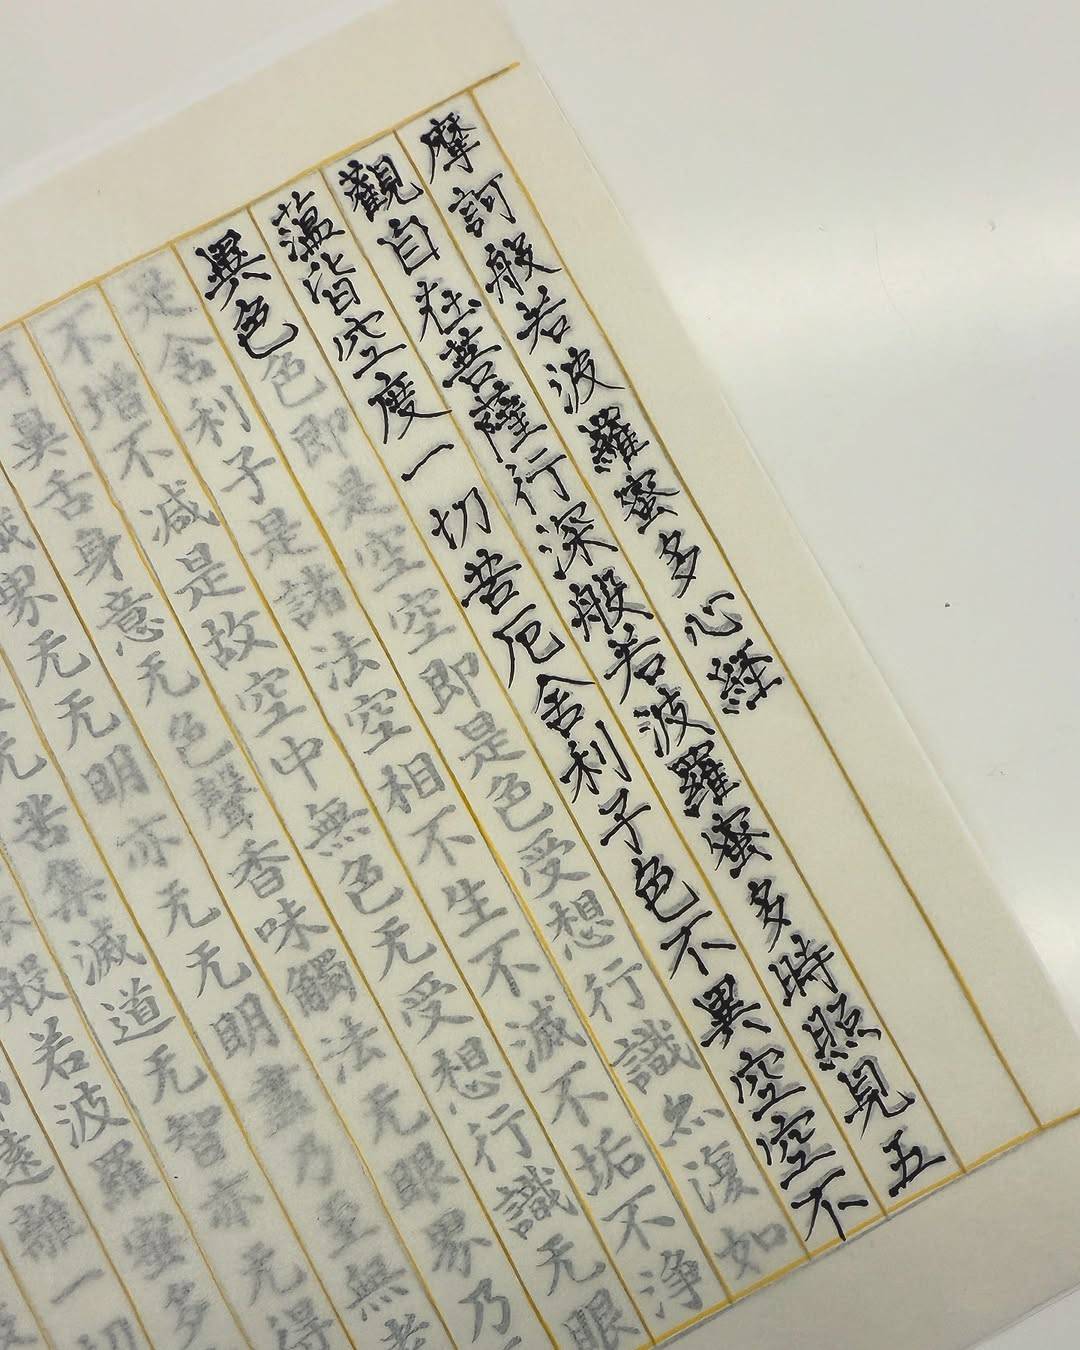 摩訶般若波羅蜜多心経
觀自在菩薩行深般若波羅蜜多時照見五
蘊皆空度一切苦厄舍利子色不異空空不
異色色即是空空即是色受想行識亦復如
是舍利子是諸法空相不生不滅不垢不浄
不増不減是故空中無色无受想行識无眼
耳鼻舌身意无色聲香味觸法无眼界乃
識界无无明亦无无明盡乃至無老
无苦集滅道无智亦无得
般若波羅蜜多
遠離一切